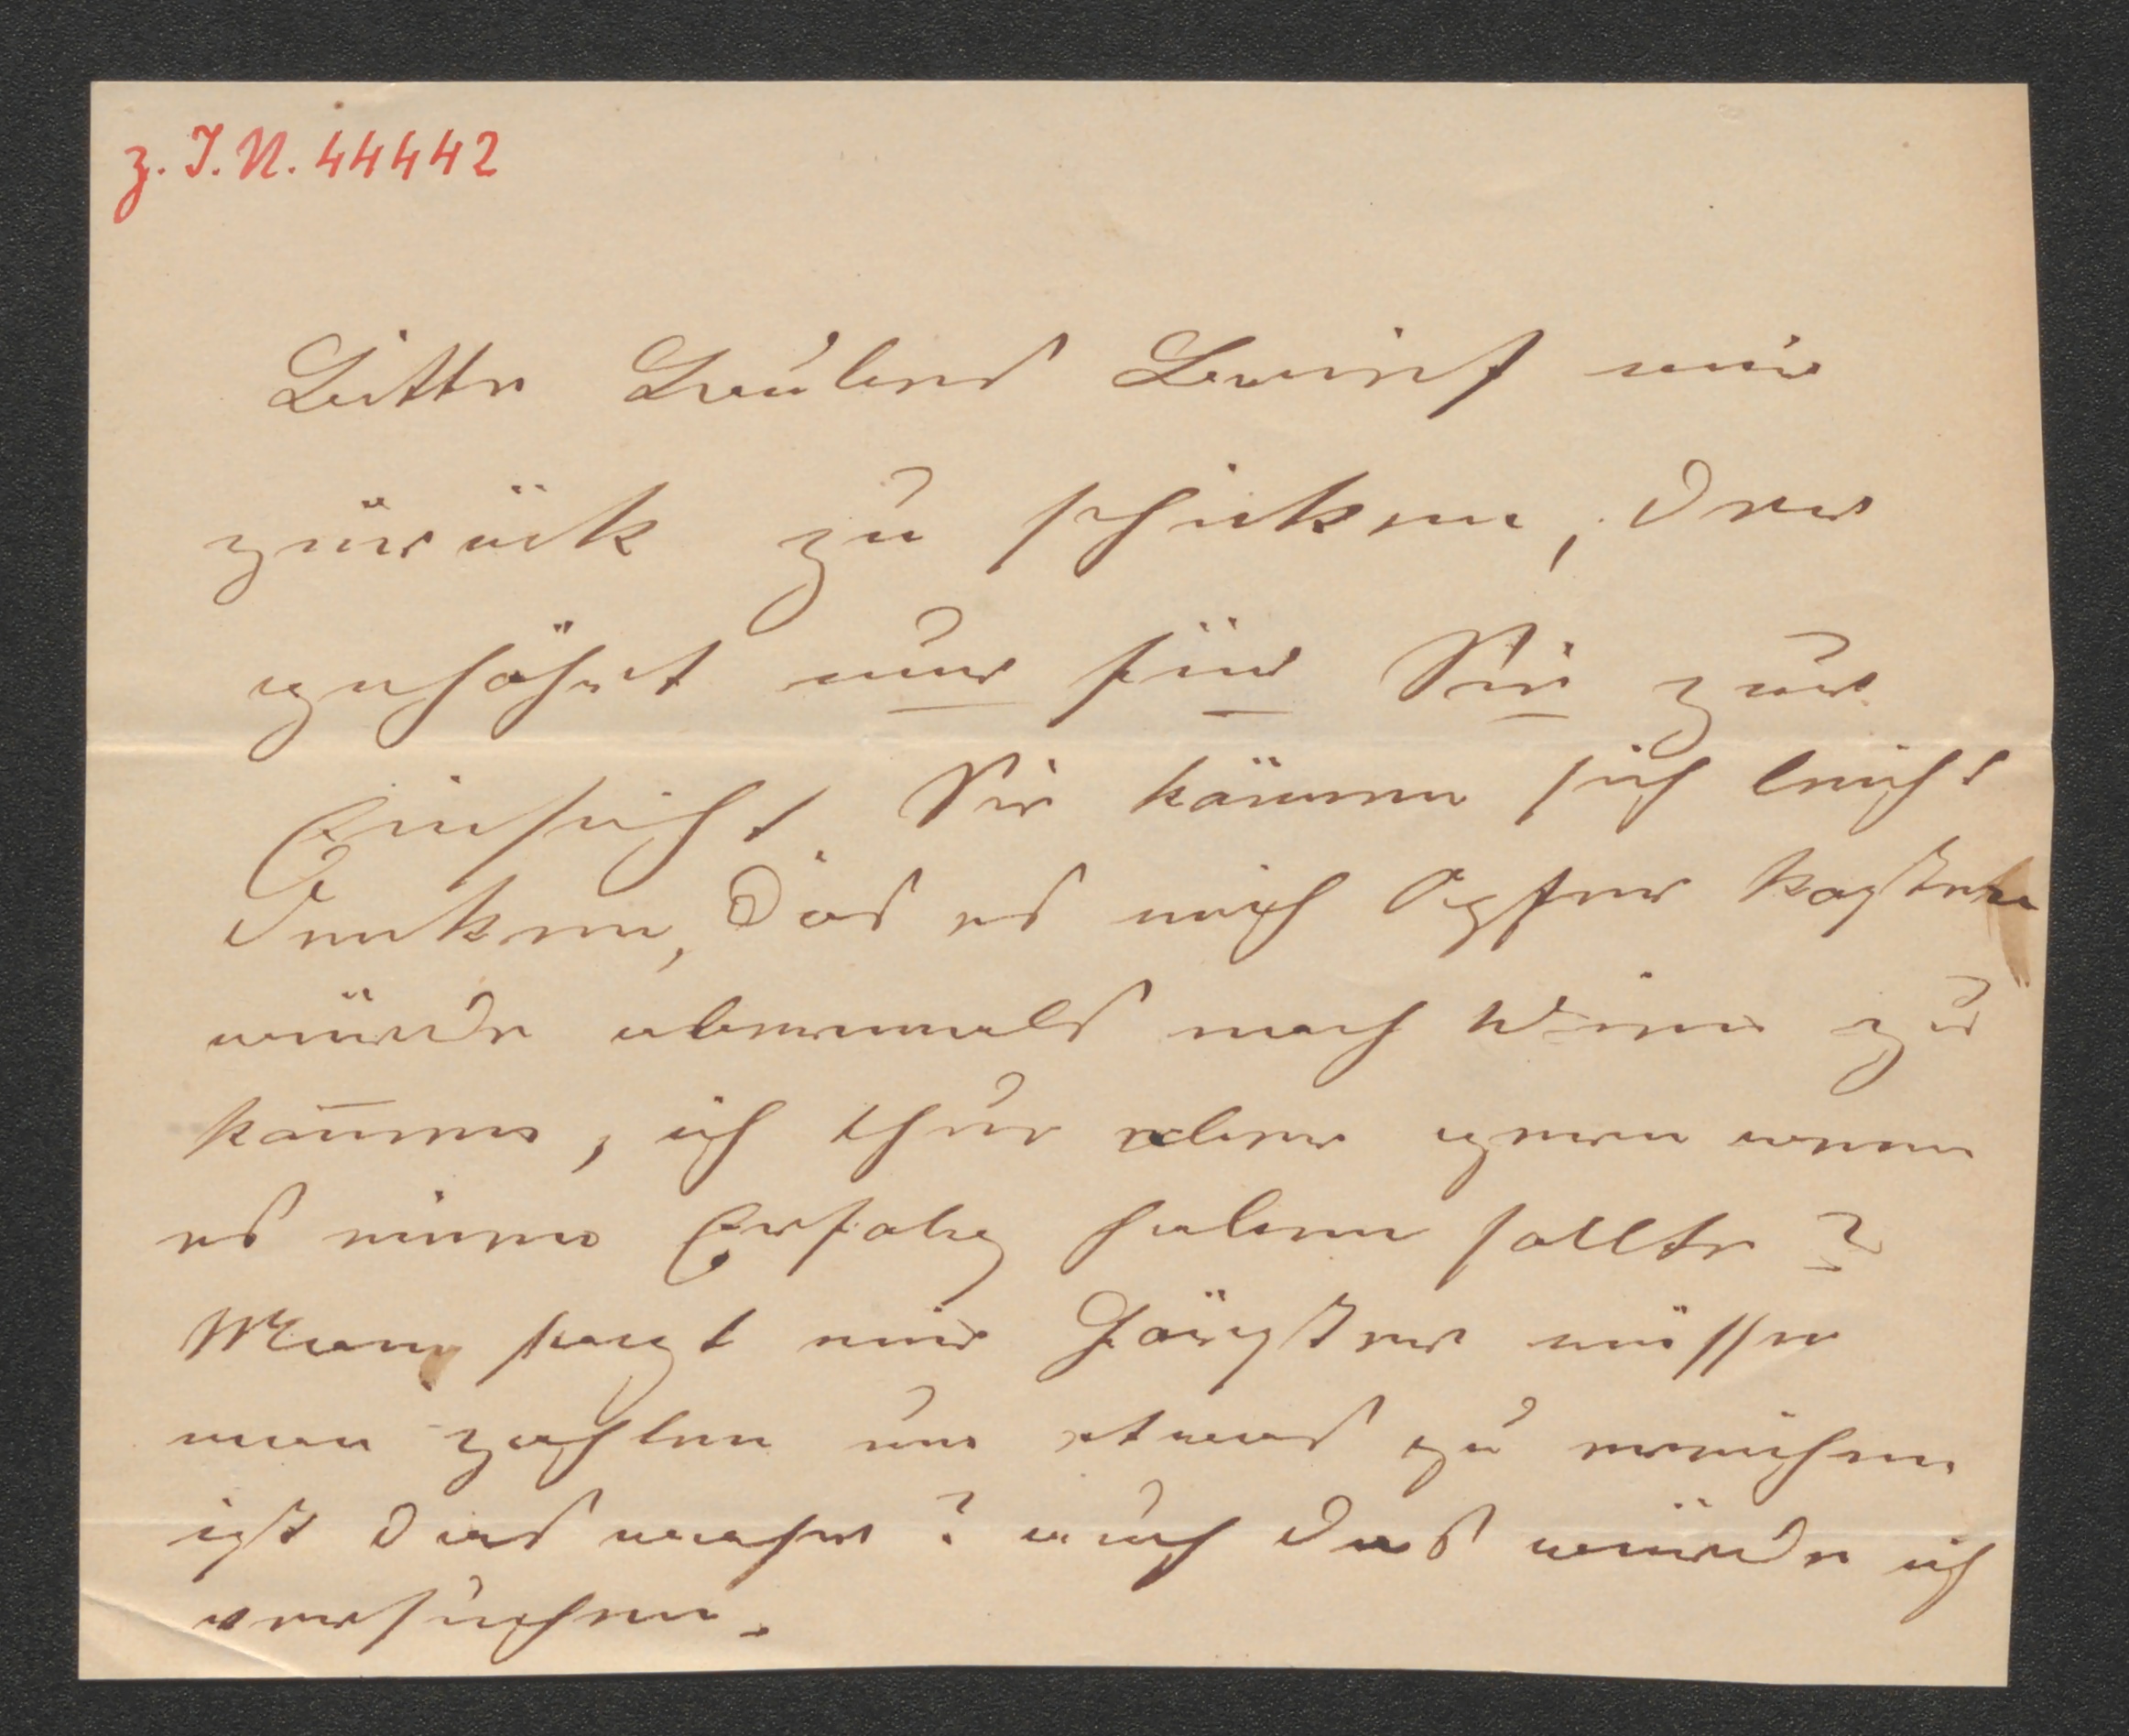 z. I. N. 44442
Bitte Laubes Brief mir
zurück zu schicken, der
gehöhrt nur für Sie zur
Einsicht Sie können sich leicht
denken, das es mich Opfer kosten
würde abermals nach Wien zu
kom̄en, ich thue aber gern wenn
es einen Erfolg haben sollte?
Man sagt mir Förster müsse
man zahlen um etwas zu erreichen
ist das wahr? auch das würde ich
versuchen.